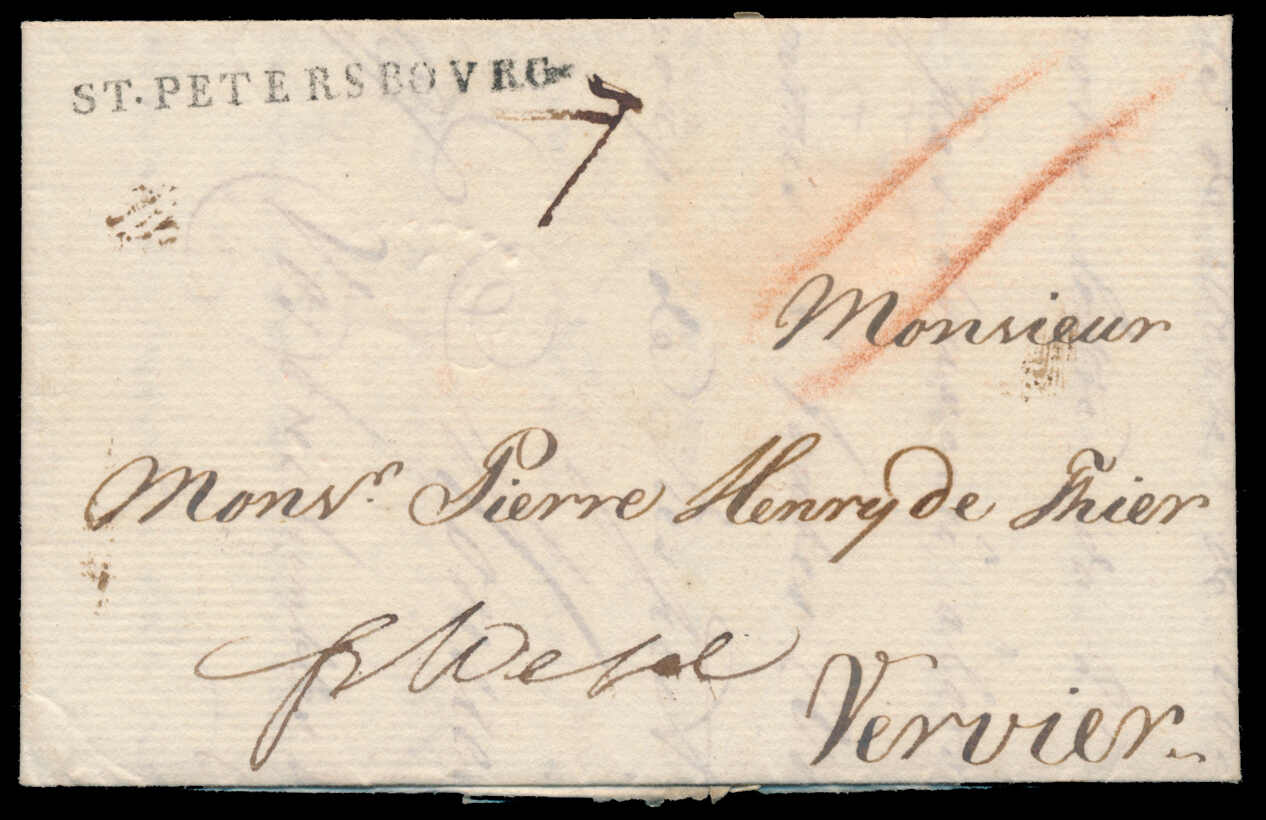 ST. PETERSBOVRG
7
Monsieur
Monsr. Pierre Henry de Thier
pr Wesel
Vervier